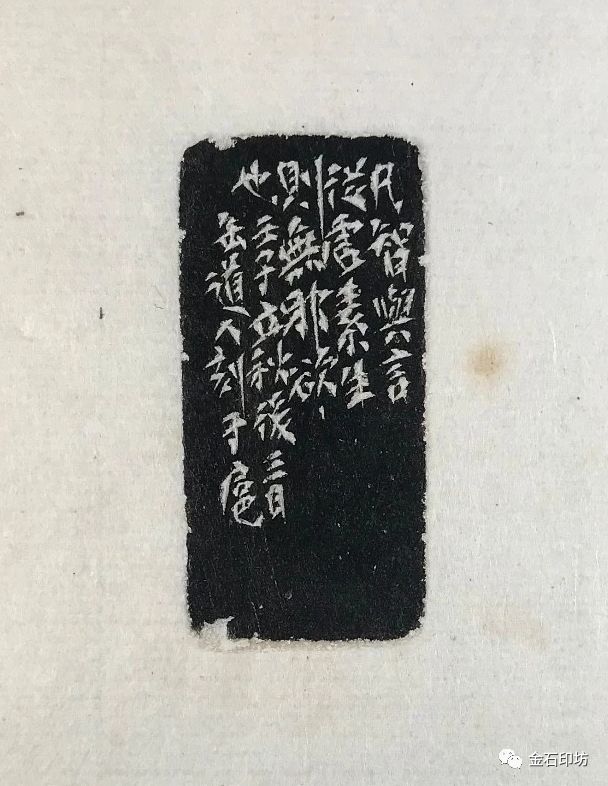 凡智與言
從虛素生
則無邪欲、
也壬子立秋後三日
缶道人刻于扈
金石印坊